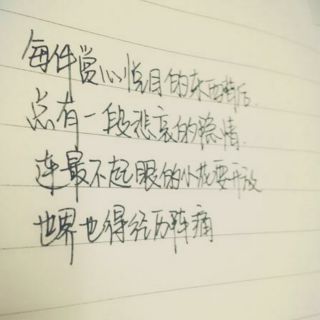 每件赏心悦目的东西背后
总有一段悲哀的隐情
连最不起眼的小花要开放
世界也得经历阵痛